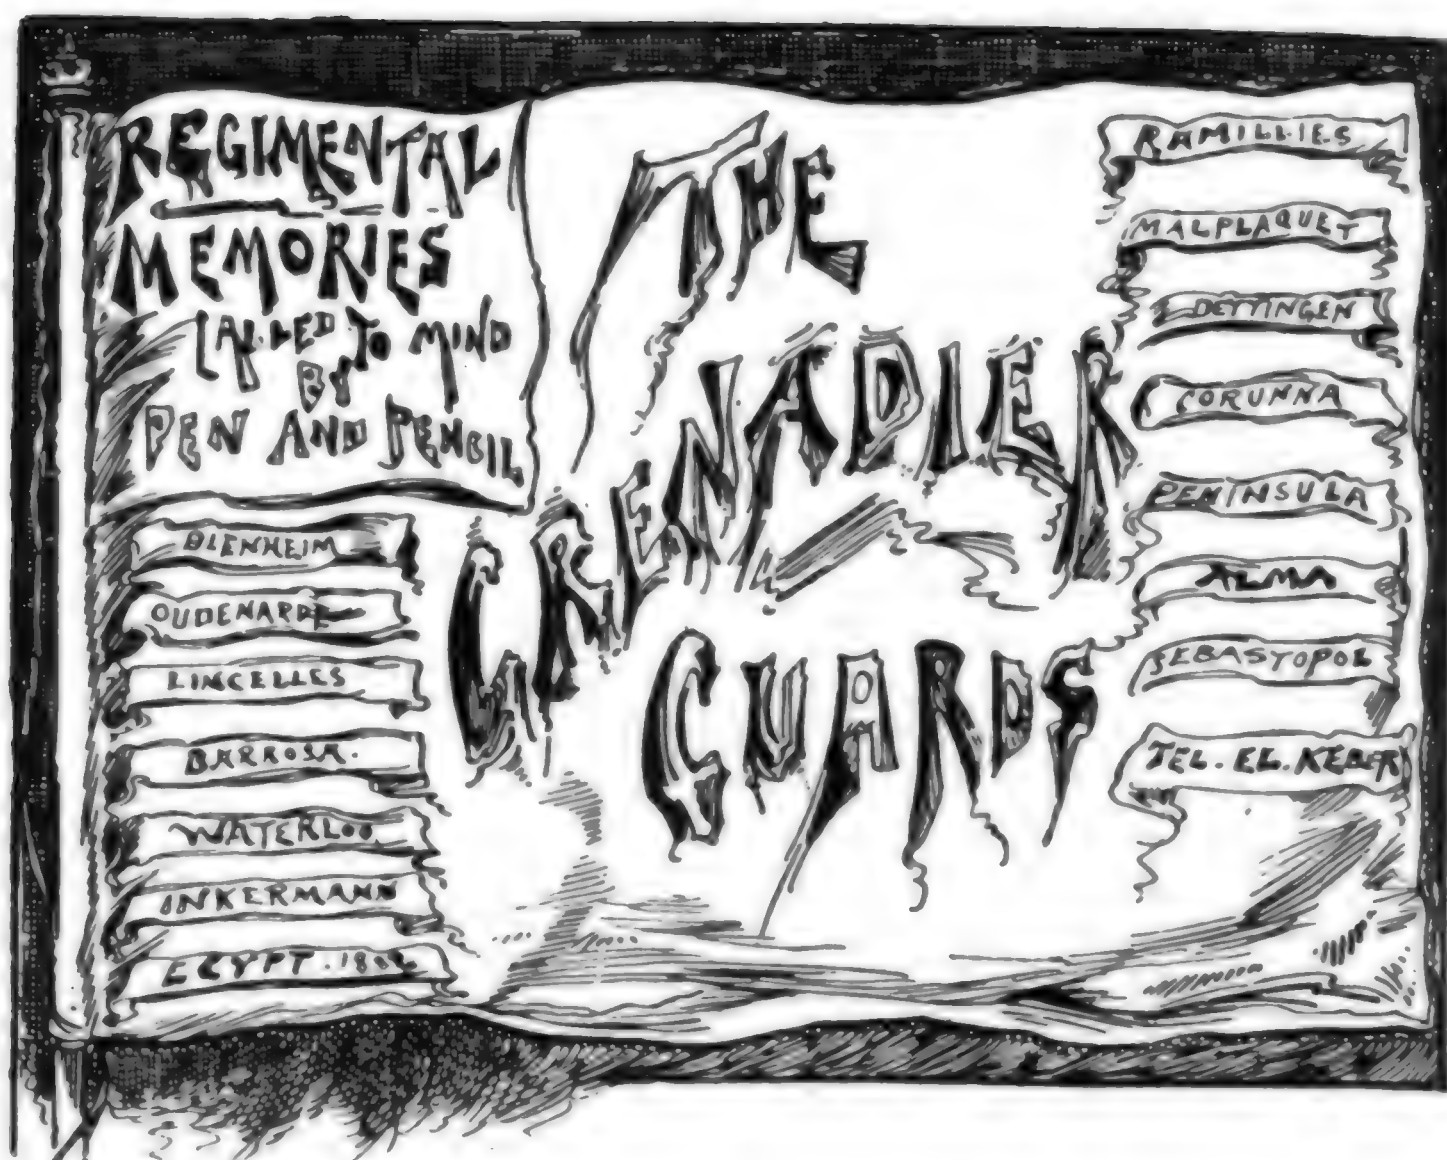 REGIMENTAL
MEMORIES
CALLED TO MIND
BY
PEN AND PENCIL
THE
GRENADIER
GUARDS
BLENHEIM
OUDENARDE
LINCELLES
BARROSA.
WATERLOO.
INKERMANN
EGYPT. 1882
RAMILLIES
MALPLAQUET
DETTINGEN
CORUNNA
PENINSULA
ALMA
SEBASTOPOL
TEL. EL. KEBER